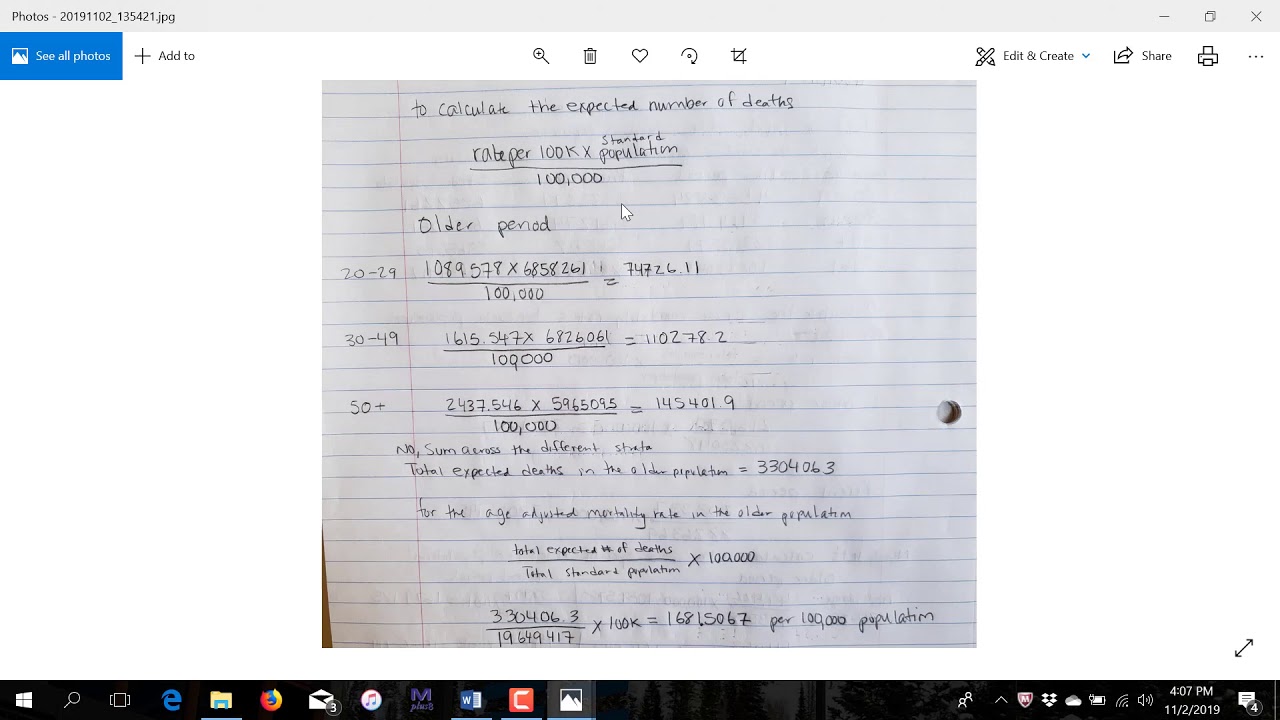 Photos - 20191102_135421.jpg
See all photos
Add to
Edit & Create
Share
to calculate the expected number of deaths
rate per 100K x standard population
100,000
Older period
20-29 1089.578 x 6858261 = 74726.11
100,000
30-49 1615.547 x 6826061 = 110278.2
100,000
50+ 2437.546 x 5965095 = 145401.9
100,000
No, Sum across the different, strata
Total expected deaths in the older population = 330406.3
for the age adjusted mortality rate in the older population
total expected # of deaths x 100,000
Total standard population
330406.3 x 100K = 1681.5067 per 100,000 population
19649417
plus8
3
4:07 PM
11/2/2019
4